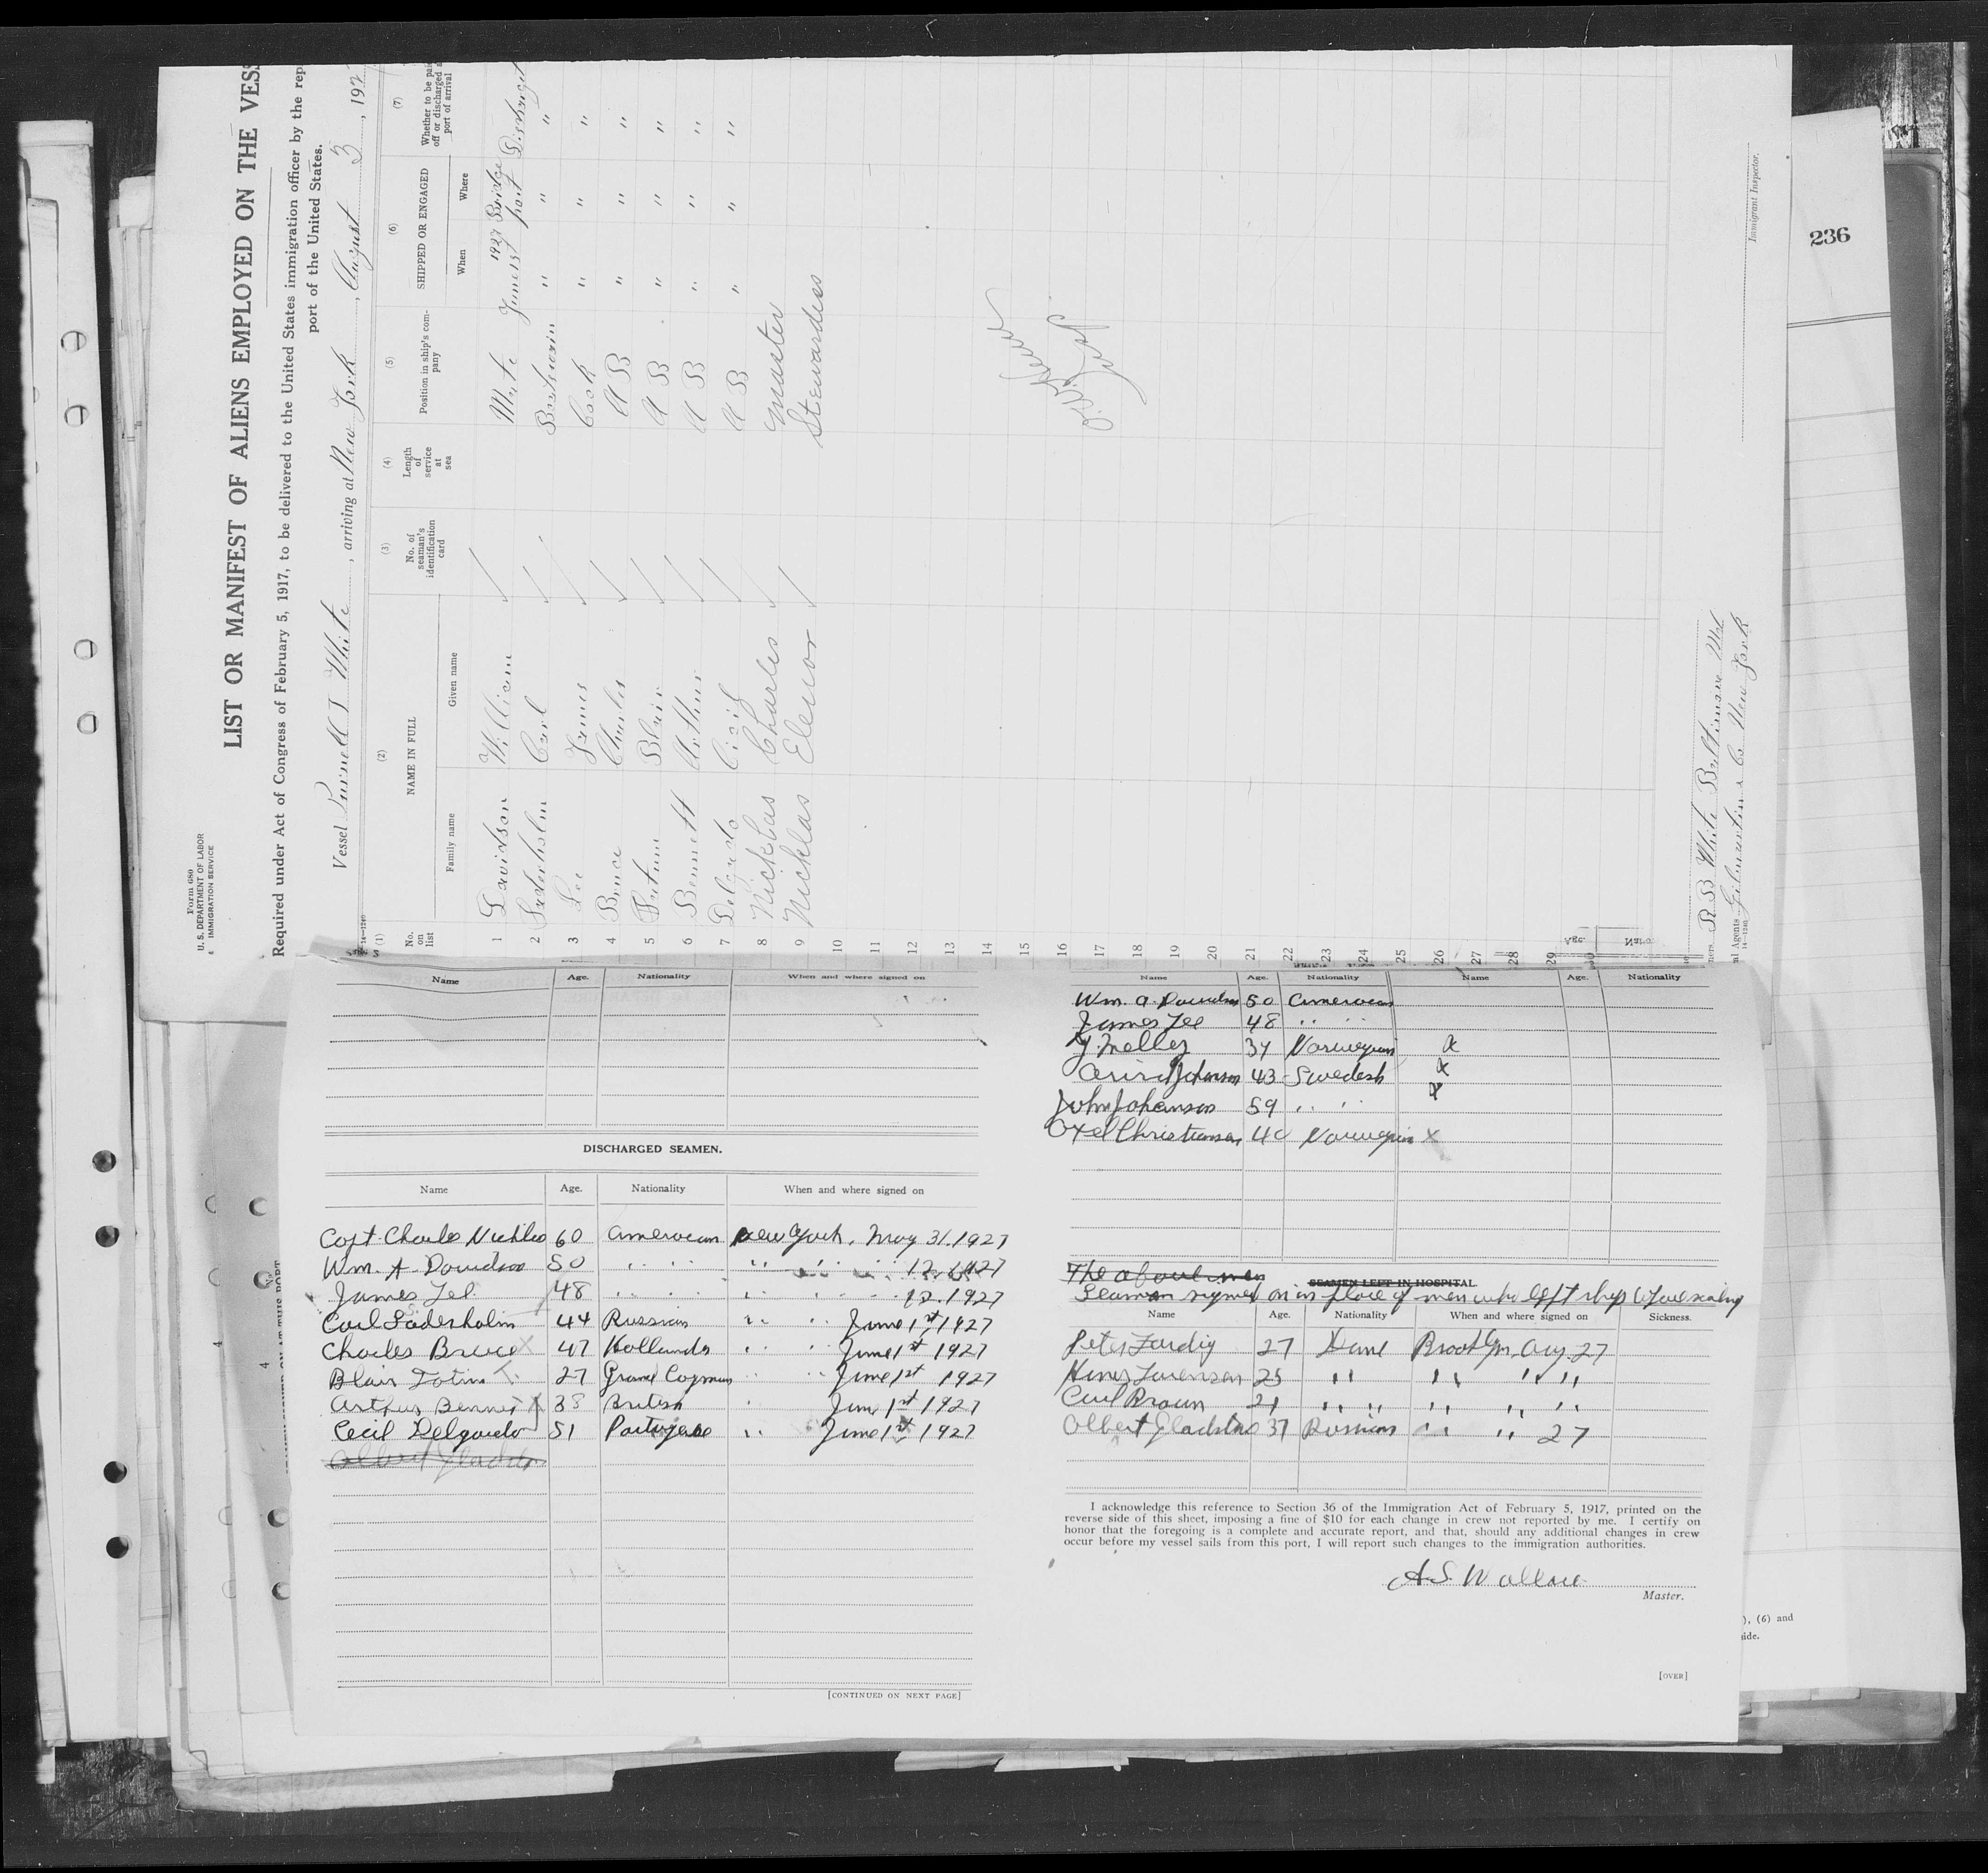 Form 680
U. S. DEPARTMENT OF LABOR
IMMIGRATION SERVICE
LIST OR MANIFEST OF ALIENS EMPLOYED ON THE VESS
Required under Act of Congress of February 5, 1917, to be delivered to the United States immigration officer by the rep
port of the United States.
Vessel Purnell T White, arriving at New York, August 3, 192
14-1240
(1) (2) (3) (4) (5) (6) (7)
No. on list
NAME IN FULL
Family name Given name
No. of seaman's identification card
Length of service at sea
Position in ship's company
SHIPPED OR ENGAGED
When Where
Whether to be paid off or discharged at port of arrival
1 Davidson William Mate June 1st 1927 Bridgeport Discharged
2 Carl " " "
3 Lee James Cook " " "
4 Bruce Charles A B " " "
5 Blair A B " " "
6 Bennett Arthur A B " " "
7 Delgardo Cicil A B " " "
8 Nicklas Charles Master
9 Nicklas Elenor Stewardess
10
11
12
13
14
15
16
17
18
19
20
21
22
23
24
25
26
27
28
29
R B White Baltimore Md
Agents Gilmartin & Co New York
14-1240
Immigrant Inspector.
236
Name Age. Nationality When and where signed on
DISCHARGED SEAMEN.
Name Age. Nationality When and where signed on
Capt. Charles Nichlas 60 American New York, May 31. 1927
Wm. A. Davidson 50 " " " " 12. 1927
James Lee 48 " " " " 12. 1927
Carl Soderholm 44 Russian " " June 1st 1927
Charles Bruce X 47 Hollander " " June 1st 1927
Blair 27 Grand Cayman " " June 1st 1927
Arthur Bennet 38 British " June 1st 1927
Cecil Delgardo 51 Portugese " June 1st 1927
Albert Gladsto
[CONTINUED ON NEXT PAGE]
Name Age. Nationality Name Age. Nationality
Wm. A. Davidson 50 American
James Lee 48 " "
37 Norwegian x
Johanson 43 Swedesh x
John Johanson 59 " " x
Oxel Christiansen 40 Norwegian x
The above men
SEAMEN LEFT IN HOSPITAL
Seaman signed on in place of men who left ship before sailing
Name Age. Nationality When and where signed on Sickness.
Peter 27 Dane Brooklyn. Aug. 27
25 " " " "
Carl Braun 21 " " " " "
Albert 37 Russian " " 27
I acknowledge this reference to Section 36 of the Immigration Act of February 5, 1917, printed on the
reverse side of this sheet, imposing a fine of $10 for each change in crew not reported by me. I certify on
honor that the foregoing is a complete and accurate report, and that, should any additional changes in crew
occur before my vessel sails from this port, I will report such changes to the immigration authorities.
A S Wallace
Master.
[OVER]
), (6) and
side.